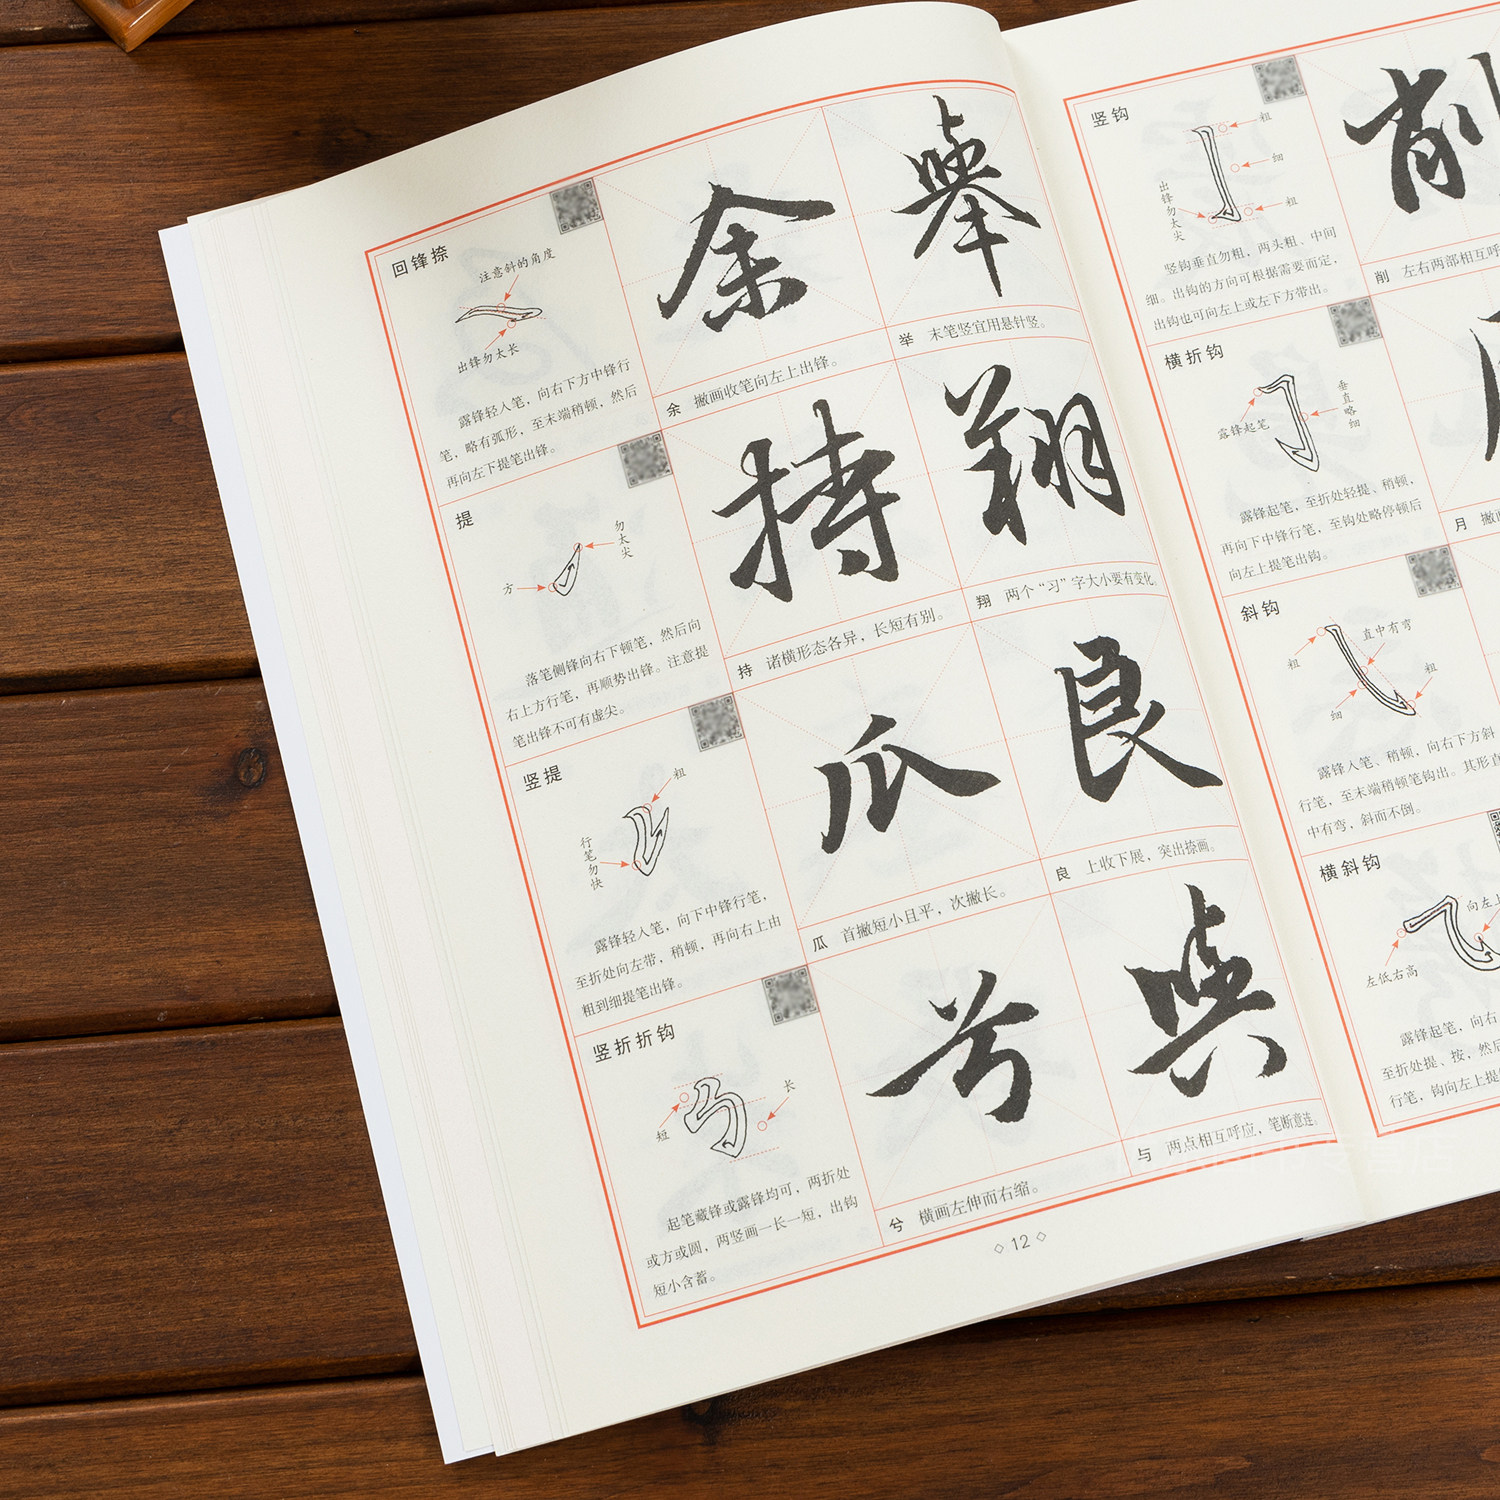 回锋捺
注意斜的角度
出锋勿太长
露锋轻入笔，向右下方中锋行
笔，略有弧形，至末端稍顿，然后
再向左下提笔出锋。
余
余 撇画收笔向左上出锋。
舉
举 末笔竖宜用悬针竖。
提
勿太尖
方
落笔侧锋向右下顿笔，然后向
右上方行笔，再顺势出锋。注意提
笔出锋不可有虚尖。
持
持 诸横形态各异，长短有别。
翔
翔 两个“习”字大小要有变化。
竖提
粗
行笔勿快
露锋轻入笔，向下中锋行笔，
至折处向左带，稍顿，再向右上由
粗到细提笔出锋。
瓜
瓜 首撇短小且平，次撇长。
良
良 上收下展，突出捺画。
竖折折钩
长
短
起笔藏锋或露锋均可，两折处
或方或圆，两竖画一长一短，出钩
短小含蓄。
兮
兮 横画左伸而右缩。
與
与 两点相互呼应，笔断意连。
12
竖钩
粗
细
粗
出锋勿太尖
竖钩垂直勿粗，两头粗、中间
细。出钩的方向可根据需要而定，
出钩也可向左上或左下方带出。
削
削 左右两部相互呼
横折钩
垂直略细
露锋起笔
露锋起笔，至折处轻提、稍顿，
再向下中锋行笔，至钩处略停顿后
向左上提笔出钩。
月 撇画
斜钩
直中有弯
粗
粗
细
露锋入笔、稍顿，向右下方斜
行笔，至末端稍顿笔钩出。其形直
中有弯，斜而不倒。
横斜钩
向左上
左低右高
露锋起笔，向右
至折处提、按，然后
行笔，钩向左上提笔